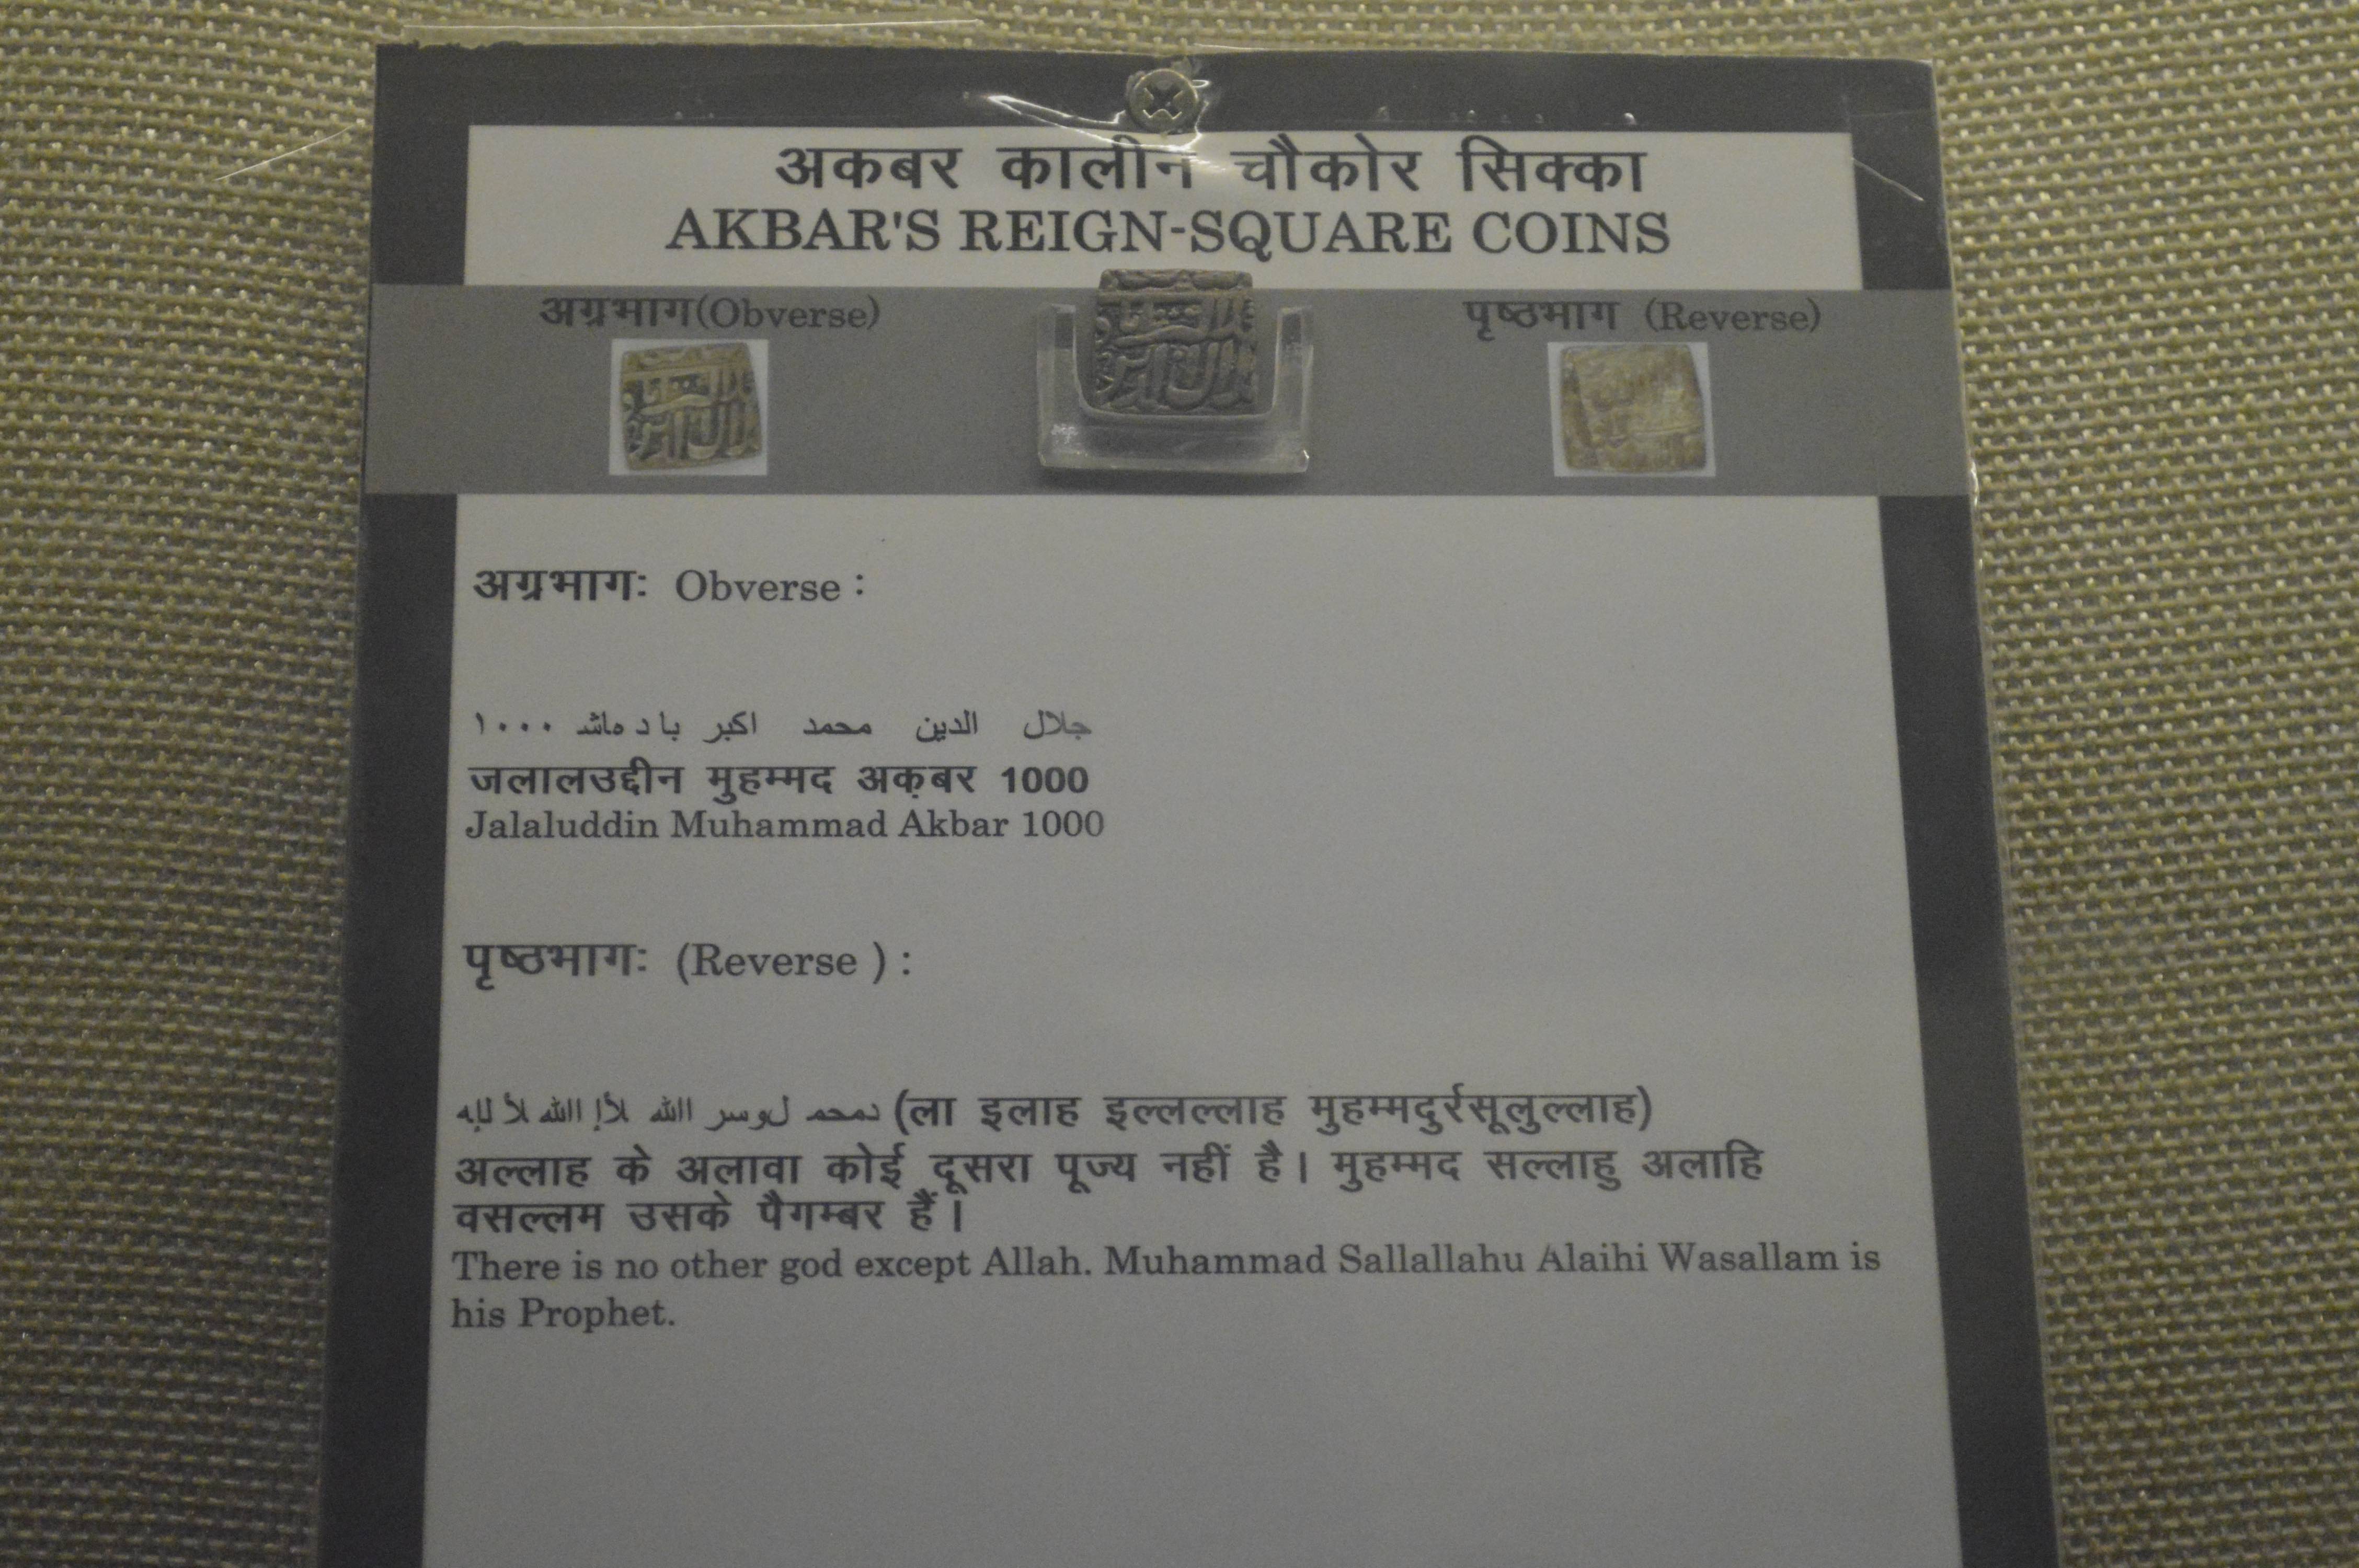 अकबर कालीन चौकोर सिक्का
AKBAR'S REIGN-SQUARE COINS
अग्रभाग(Obverse)
पृष्ठभाग (Reverse)
अग्रभागः Obverse :
جلال الدين محمد اكبر با د ماشد ١٠٠٠
जलालउद्दीन मुहम्मद अक़बर 1000
Jalaluddin Muhammad Akbar 1000
पृष्ठभागः (Reverse ) :
(ला इलाह इल्लल्लाह मुहम्मदुर्रसूलुल्लाह)
अल्लाह के अलावा कोई दूसरा पूज्य नहीं है। मुहम्मद सल्लाहु अलाहि
वसल्लम उसके पैगम्बर हैं।
There is no other god except Allah. Muhammad Sallallahu Alaihi Wasallam is
his Prophet.